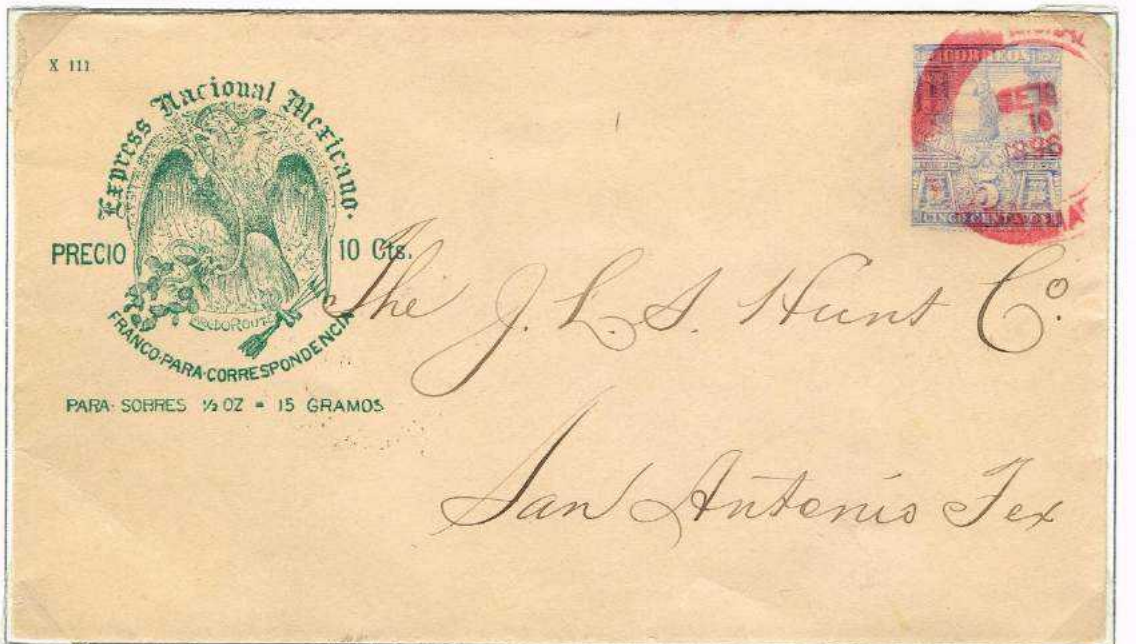 X III
Express Nacional Mexicano.
PRECIO 10 Cts.
FRANCO·PARA·CORRESPONDENCIA
PARA· SOBRES ½ OZ = 15 GRAMOS
CORREOS
5
SET
10
1896
The J. L. S. Hunt Co.
San Antonio Tex